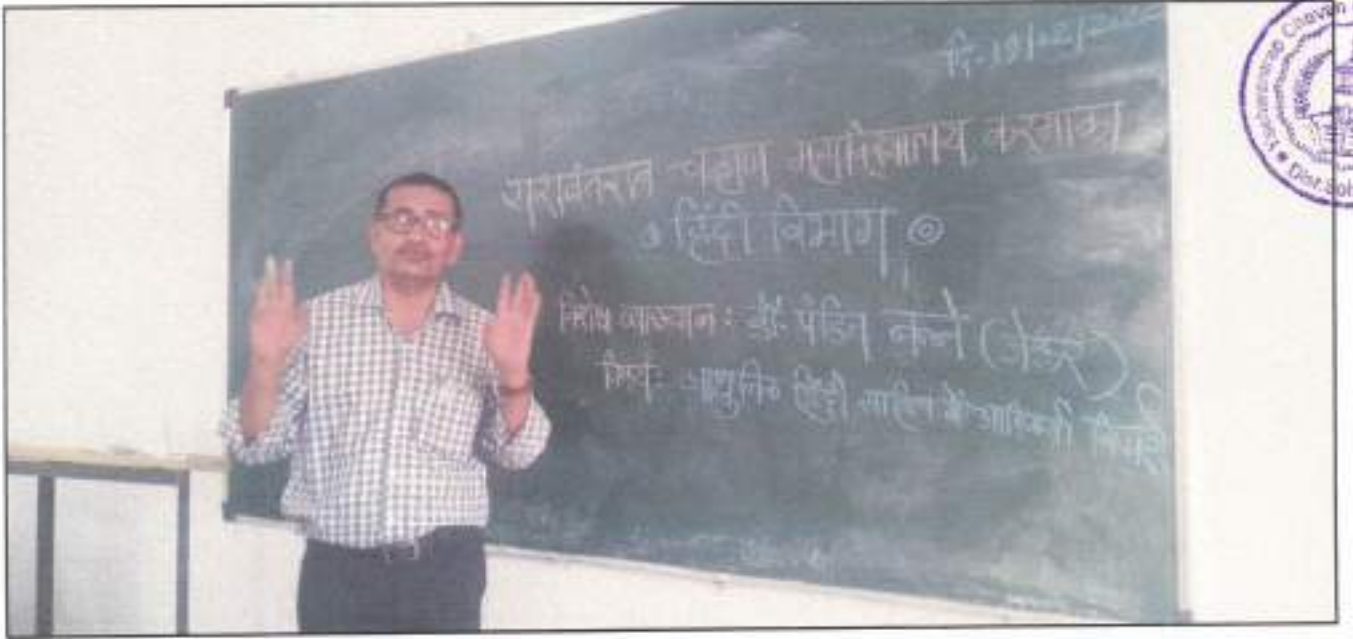 दि-19/02/202
यशवंतराव चव्हाण महाविद्यालय करमाळा
हिंदी विभाग
विशेष व्याख्यान : डॉ. पंडित बन्ने
विषय:- आधुनिक हिंदी साहित्य में आदिवासी विमर्श
Yashwantrao Chavan
Dist. Sol